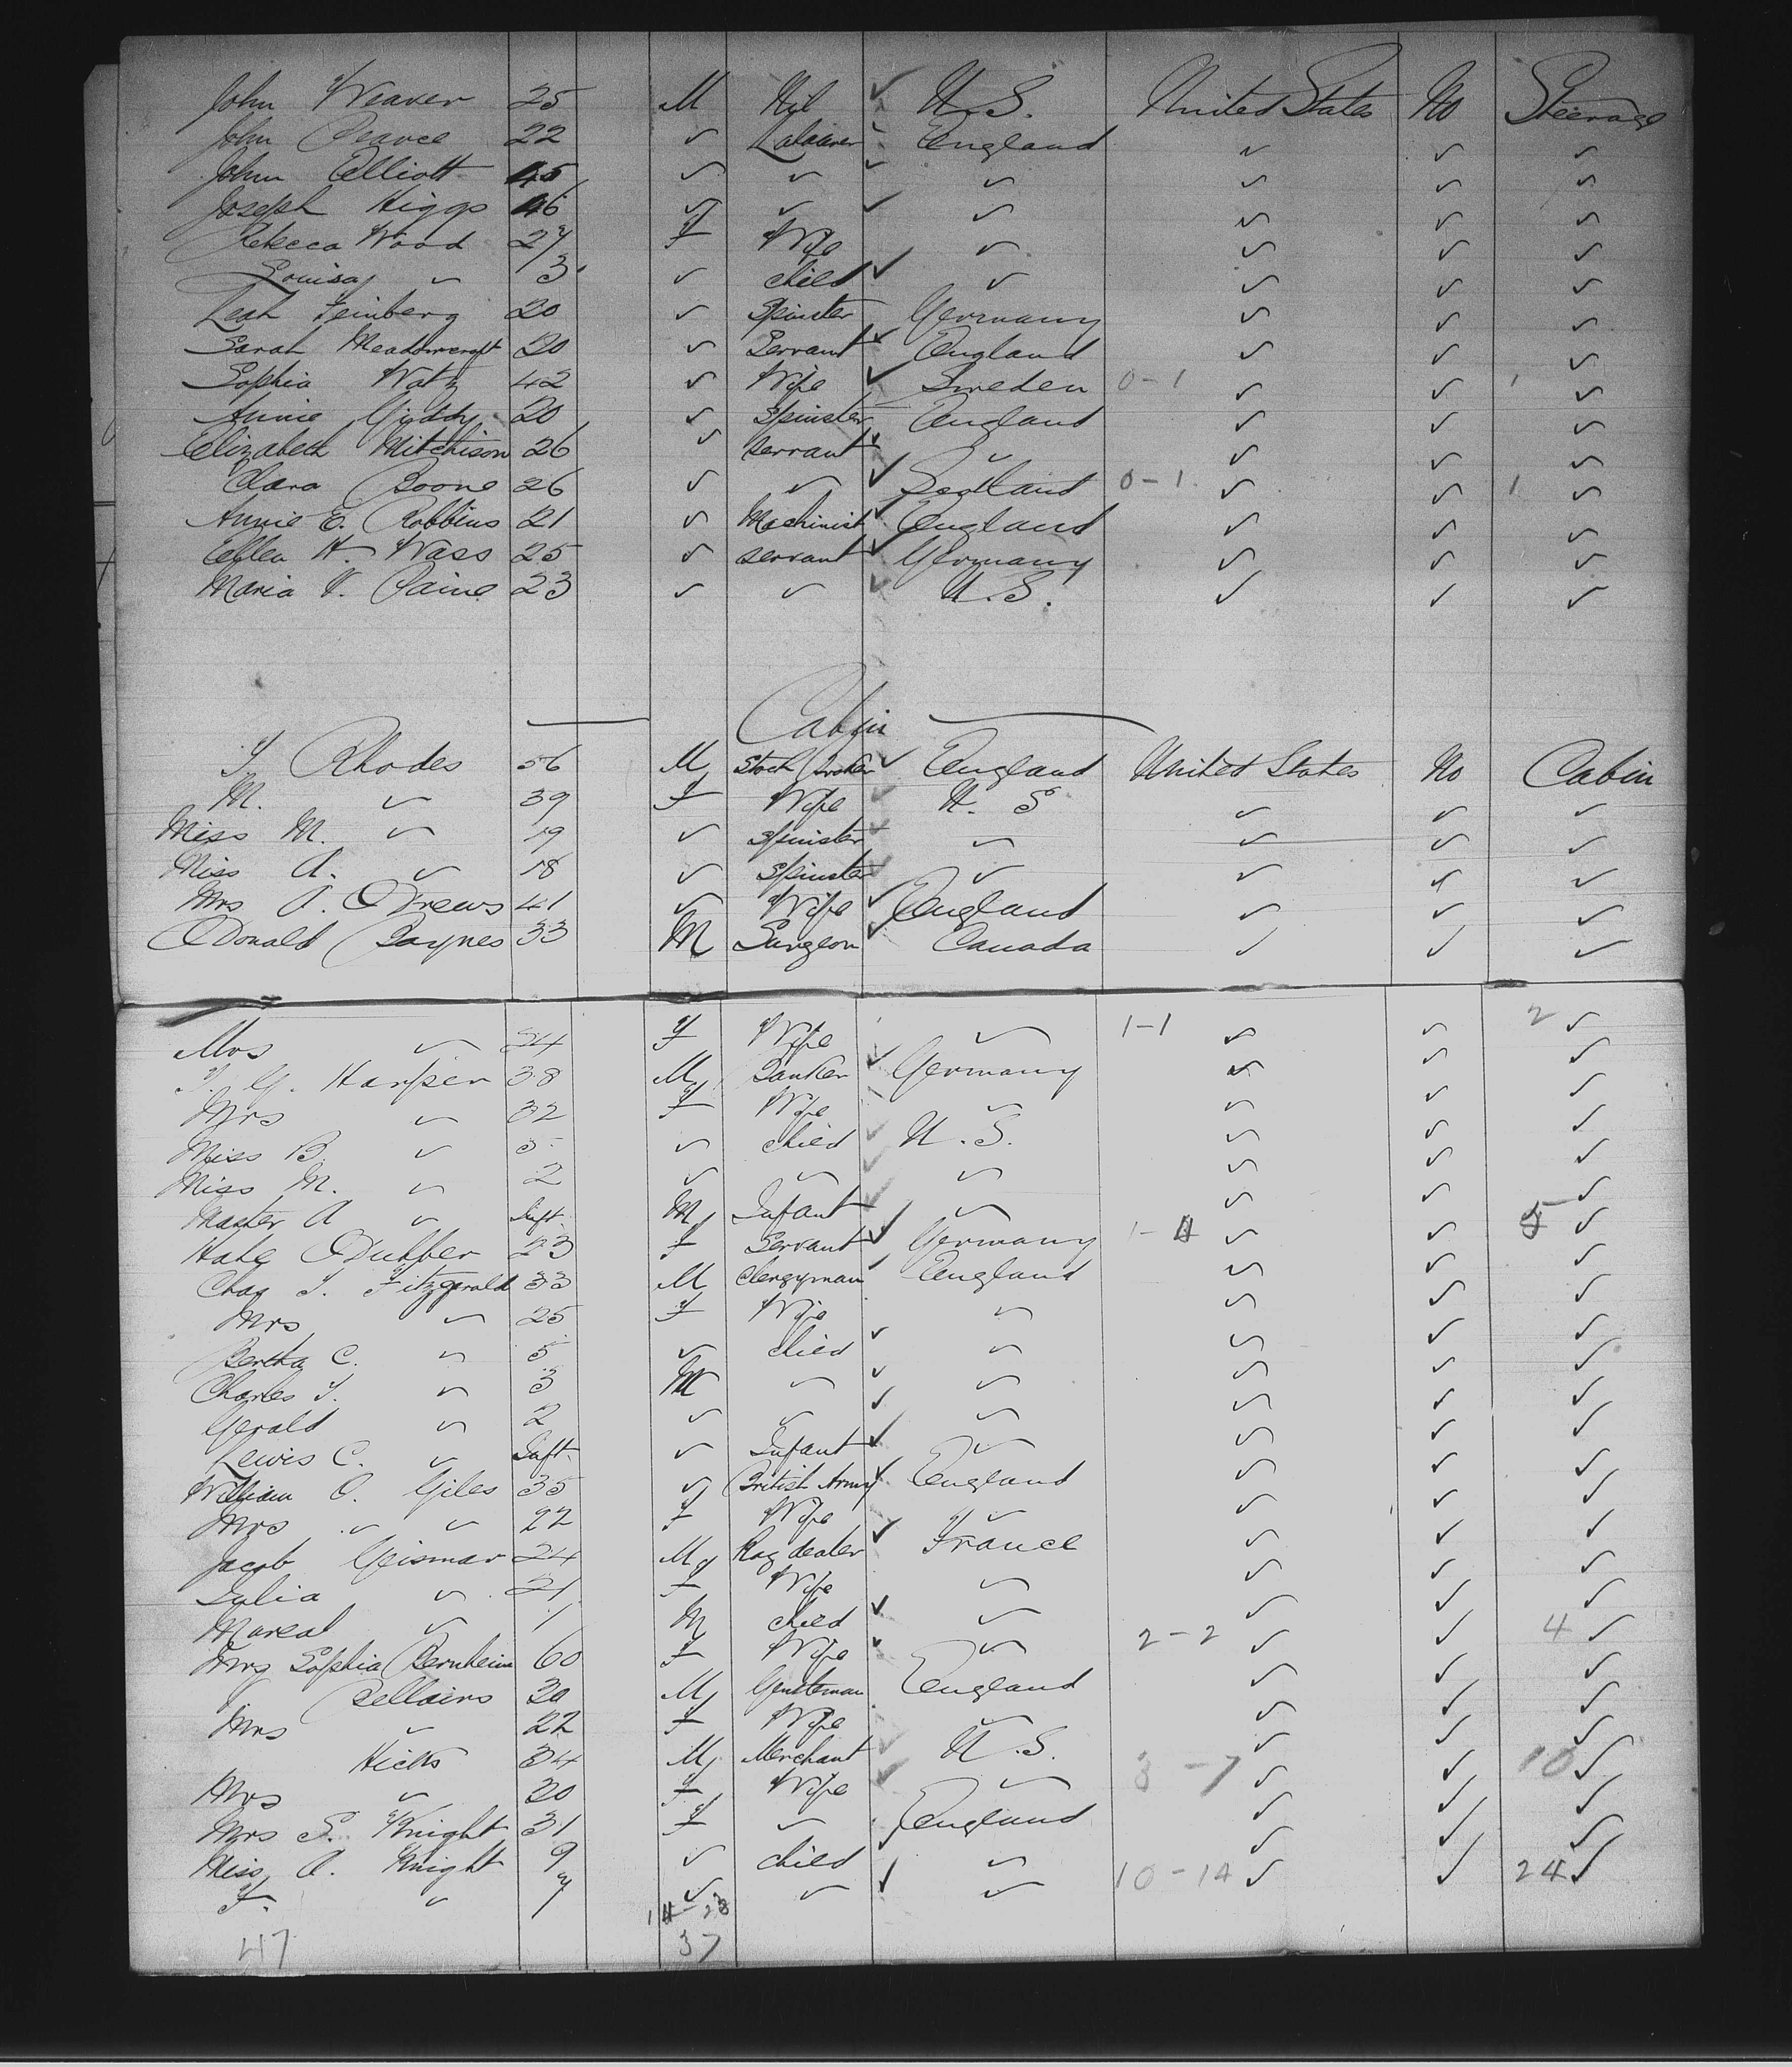 John Weaver 25 M Nil ✓ U.S. United States No Steerage
John Pearce 22 ✓ Labourer ✓ England ✓ ✓ ✓
John Elliott 45 ✓ ✓ ✓ ✓ ✓ ✓ ✓
Joseph Higgs 46 ✓ ✓ ✓ ✓ ✓ ✓ ✓
Rebecca Wood 27 F Wife ✓ ✓ ✓ ✓
Louisa ✓ 3 ✓ child ✓ ✓ ✓ ✓ ✓
Leah Feinberg 20 ✓ Spinster Germany ✓ ✓ ✓
Sarah Meadowcroft 20 ✓ Servant ✓ England ✓ ✓ ✓
Sophia Watz 42 ✓ Wife ✓ Sweden 0-1 ✓ ✓ 1 ✓
Annie Giddy 20 ✓ Spinster England ✓ ✓ ✓
Elizabeth Mitchison 26 ✓ servant ✓ ✓ ✓ ✓ ✓
Clara Boone 26 ✓ ✓ ✓ Scotland 0-1 ✓ ✓ 1 ✓
Annie E. Robbins 21 ✓ Machinist ✓ England ✓ ✓ ✓
Ellen H. Wass 25 ✓ servant ✓ Germany ✓ ✓ ✓
Maria V. Paine 23 ✓ ✓ ✓ U.S. ✓ ✓ ✓
Cabin
Rhodes 56 M Stock broker ✓ England United States No Cabin
M. ✓ 39 F Wife ✓ U. S ✓ ✓ ✓
Miss M. ✓ 19 ✓ Spinster ✓ ✓ ✓ ✓ ✓
Miss A. ✓ 18 ✓ Spinster ✓ ✓ ✓ ✓ ✓
Mrs A. Drews 41 ✓ Wife ✓ England ✓ ✓ ✓
Donald Baynes 33 M Surgeon ✓ Canada ✓ ✓ ✓
Mrs ✓ 24 F Wife ✓ 1-1 ✓ ✓ 2 ✓
Harper 38 M Banker ✓ Germany ✓ ✓ ✓
Mrs ✓ 32 F Wife ✓ ✓ ✓ ✓
Miss B. ✓ 5 ✓ child ✓ U.S. ✓ ✓ ✓
Miss M. ✓ 2 ✓ ✓ ✓ ✓ ✓ ✓ ✓
Master A ✓ Inft. M Infant ✓ ✓ ✓ ✓ ✓
23 F Servant ✓ Germany 1-4 ✓ ✓ 5 ✓
Chas J. Fitzgerald 33 M Clergyman ✓ England ✓ ✓ ✓
Mrs ✓ 25 F Wife ✓ ✓ ✓ ✓
Bertha C. ✓ 5 ✓ child ✓ ✓ ✓ ✓ ✓
Charles J. ✓ 3 M ✓ ✓ ✓ ✓ ✓ ✓
Gerald ✓ 2 ✓ ✓ ✓ ✓ ✓ ✓ ✓
Lewis C. ✓ Inft. ✓ Infant ✓ ✓ ✓ ✓ ✓
William O. Giles 35 ✓ British Army ✓ England ✓ ✓ ✓
Mrs ✓ ✓ 22 F Wife ✓ ✓ ✓ ✓
Jacob Geismar 24 M Rag dealer ✓ France ✓ ✓ ✓
Julia ✓ 21 F Wife ✓ ✓ ✓ ✓
Marcal ✓ 1 M child ✓ ✓ ✓ ✓ ✓
Mrs Sophia Bernheim 60 F Wife ✓ ✓ 2-2 ✓ ✓ 4 ✓
J. Bellairs 30 M Gentleman England ✓ ✓ ✓
Mrs ✓ 22 F Wife ✓ ✓ ✓ ✓
Hicks 34 M Merchant ✓ U.S. ✓ ✓ ✓
Mrs ✓ 20 F Wife ✓ ✓ 3-7 ✓ ✓ 10 ✓
Mrs S. Knight 31 F ✓ England ✓ ✓ ✓
Miss A. Knight 9 ✓ child ✓ ✓ ✓ ✓
F. ✓ 7 ✓ ✓ ✓ ✓ 10-14 ✓ ✓ 24 ✓
14-23
47 37